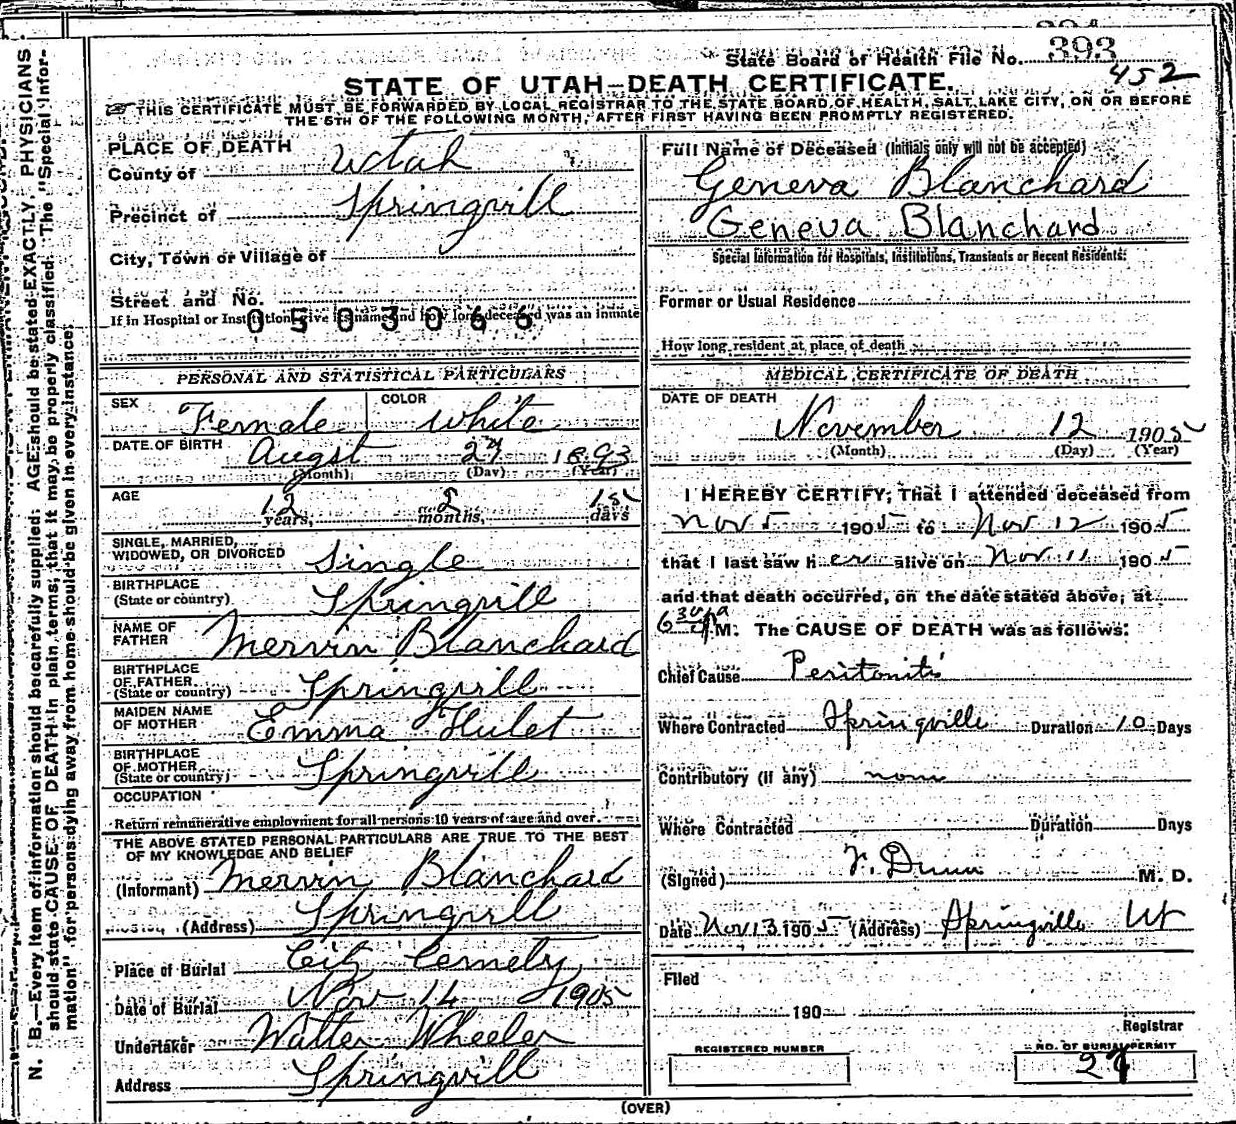 State Board of Health File No. 393
452
STATE OF UTAH—DEATH CERTIFICATE.
THIS CERTIFICATE MUST BE FORWARDED BY LOCAL REGISTRAR TO THE STATE BOARD OF HEALTH, SALT LAKE CITY, ON OR BEFORE
THE 5TH OF THE FOLLOWING MONTH, AFTER FIRST HAVING BEEN PROMPTLY REGISTERED.
PLACE OF DEATH
County of Utah
Precinct of Springvill
City, Town or Village of
Street and No.
If in Hospital or Institution, give its name and how long deceased was an inmate
0503066
PERSONAL AND STATISTICAL PARTICULARS
SEX Female COLOR white
DATE OF BIRTH Augst 27 1893
(Month) (Day) (Year)
AGE 12 years, 2 months, 15 days
SINGLE, MARRIED,
WIDOWED, OR DIVORCED Single
BIRTHPLACE
(State or country) Springvill
NAME OF
FATHER Mervin Blanchard
BIRTHPLACE
OF FATHER
(State or country) Springvill
MAIDEN NAME
OF MOTHER Emma Hulet
BIRTHPLACE
OF MOTHER
(State or country) Springvill
OCCUPATION
Return remunerative employment for all persons 10 years of age and over.
THE ABOVE STATED PERSONAL PARTICULARS ARE TRUE TO THE BEST
OF MY KNOWLEDGE AND BELIEF
(Informant) Mervin Blanchard
(Address) Springvill
Place of Burial City Cemety
Date of Burial Nov 14 1905
Undertaker Walter Wheeler
Address Springvill
Full Name of Deceased (Initials only will not be accepted)
Geneva Blanchard
Geneva Blanchard
Special Information for Hospitals, Institutions, Transients or Recent Residents:
Former or Usual Residence
How long resident at place of death
MEDICAL CERTIFICATE OF DEATH
DATE OF DEATH
November 12 1905
(Month) (Day) (Year)
I HEREBY CERTIFY, That I attended deceased from
Nov 5 1905 to Nov 12 1905
that I last saw her alive on Nov 11 1905
and that death occurred, on the date stated above, at
6 30 a M. The CAUSE OF DEATH was as follows:
Chief Cause Peritonitis
Where Contracted Springville Duration 10 Days
Contributory (if any) none
Where Contracted Duration Days
(Signed) F. Dunn M. D.
Date Nov 13 1905 (Address) Springville Ut
Filed
190
Registrar
REGISTERED NUMBER
NO. OF BURIAL PERMIT
29
(OVER)
N. B.—Every item of information should be carefully supplied. AGE should be stated EXACTLY. PHYSICIANS
should state CAUSE OF DEATH in plain terms, that it may be properly classified. The "Special Infor-
mation" for persons dying away from home should be given in every instance.